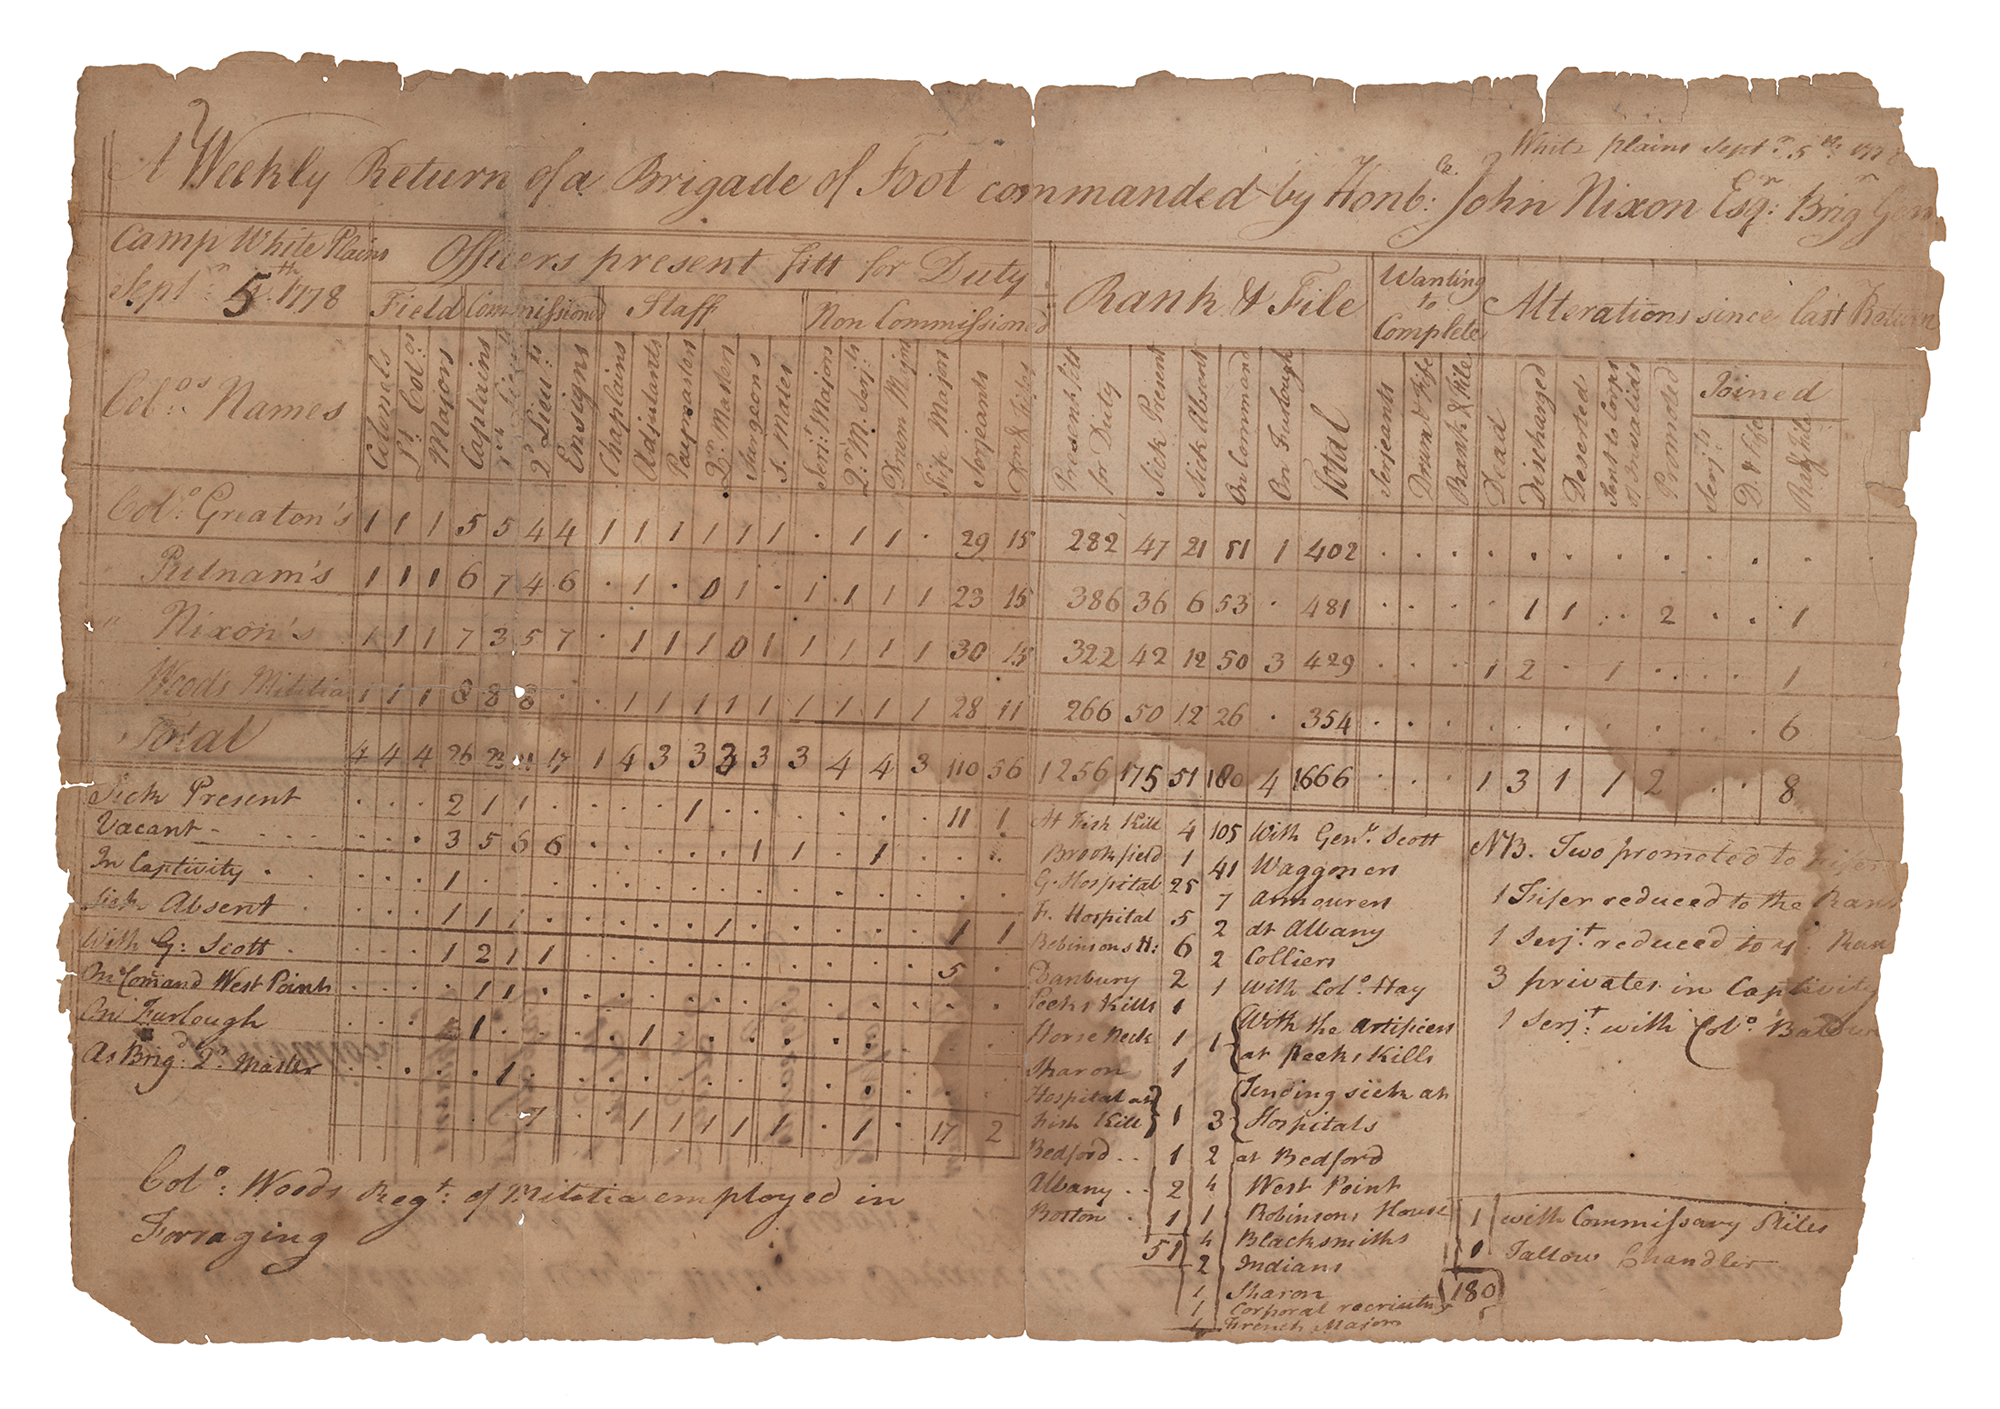 White plains Septr. 5th. 1778
A Weekly Return of a Brigade of Foot commanded by Honble. John Nixon Esqr. Brigr Genl
Camp White Plains
Septr. 5th. 1778
Officers present fitt for Duty
Rank & File
Wanting to Complete
Alterations since last Return
Field
Commissioned
Staff
Non Commissioned
Joined
Colos. Names
Colonels
Lt. Colos
Majors
Captains
1st Lieuts
2d Lieuts
Ensigns
Chaplains
Adjutants
Paymasters
Qr. Masters
Surgeons
S. Mates
Serjt. Majors
Qr. M. Serjts
Drum Majors
Fife Majors
Serjeants
Drms & Fifes
Present fitt for Duty
Sick Present
Sick Absent
On Command
On Furlough
Total
Serjeants
Drum & Fife
Rank & File
Dead
Discharged
Deserted
Sent to Corps of Invalids
Promoted
Serjts
D. & Fife
Rak & File
Colo. Greaton's 1 1 1 5 5 4 4 1 1 1 1 1 1 . 1 1 . 29 15 282 47 21 51 1 402 . . . . . . . . . . .
" Putnam's 1 1 1 6 7 4 6 . 1 . 0 1 . 1 1 1 1 23 15 386 36 6 53 . 481 . . . . 1 1 . 2 . . 1
" Nixon's 1 1 1 7 3 5 7 . 1 1 1 0 1 1 1 1 1 30 15 322 42 12 50 3 429 . . . 1 2 . 1 . . . 1
Woods Militia 1 1 1 8 8 8 . . 1 1 1 1 1 1 1 1 1 28 11 266 50 12 26 . 354 . . . . . . . . . . 6
Total 4 4 4 26 23 21 17 1 4 3 3 3 3 3 4 4 3 110 56 1256 175 51 180 4 1666 . . . 1 3 1 1 2 . . 8
Sick Present . . . 2 1 1 . . . . 1 . . . . . . 11 1
Vacant . . . 3 5 6 6 . . . . . 1 1 . 1 . . .
In Captivity . . . 1 . . . . . . . . . . . . . . .
Sick Absent . . . 1 1 1 . . . . . 1 . . . . . 1 1
With G: Scott . . . 1 2 1 1 . . . . . . . . . . 5 .
On Comand West Point . . . . 1 1 . . . . . . . . . . . . .
On Furlough . . . 1 1 . . . . 1 . . . . . . . . .
As Brigd. Qr. Master . . . . . 1 . . . . . . . . . . . . .
7 . . 1 1 1 1 1 . 1 . 17 2
Colo: Woods Regt: of Militia employed in
Forraging
At Fish Kill 4
Brookfield 1
G. Hospital 25
F. Hospital 5
Robinsons H: 6
Danbury 2
Peeks Kills 1
Horse Neck 1
Sharon 1
Hospital at
Fish Kill } 1
Bedford . . 1
Albany . . 2
Boston . 1
51
105 With Genr. Scott
41 Waggoners
7 Armourers
2 at Albany
2 Colliers
1 with Colo. Hay
1 { With the Artificers
at Peeks Kills
3 { Tending sick at
Hospitals
2 at Bedford
4 West Point
1 Robinsons House
4 Blacksmiths
2 Indians
1 Sharon
1 Corporal recruitng
1 French Majors
NB. Two promoted to
1 Fifer reduced to the Rank
1 Serjt reduced to ye. Ran
3 privates in Captivity
1 Serjt. with Colo. Baldwin
1 with Commissary Stiles
1 Tallow Chandler
180